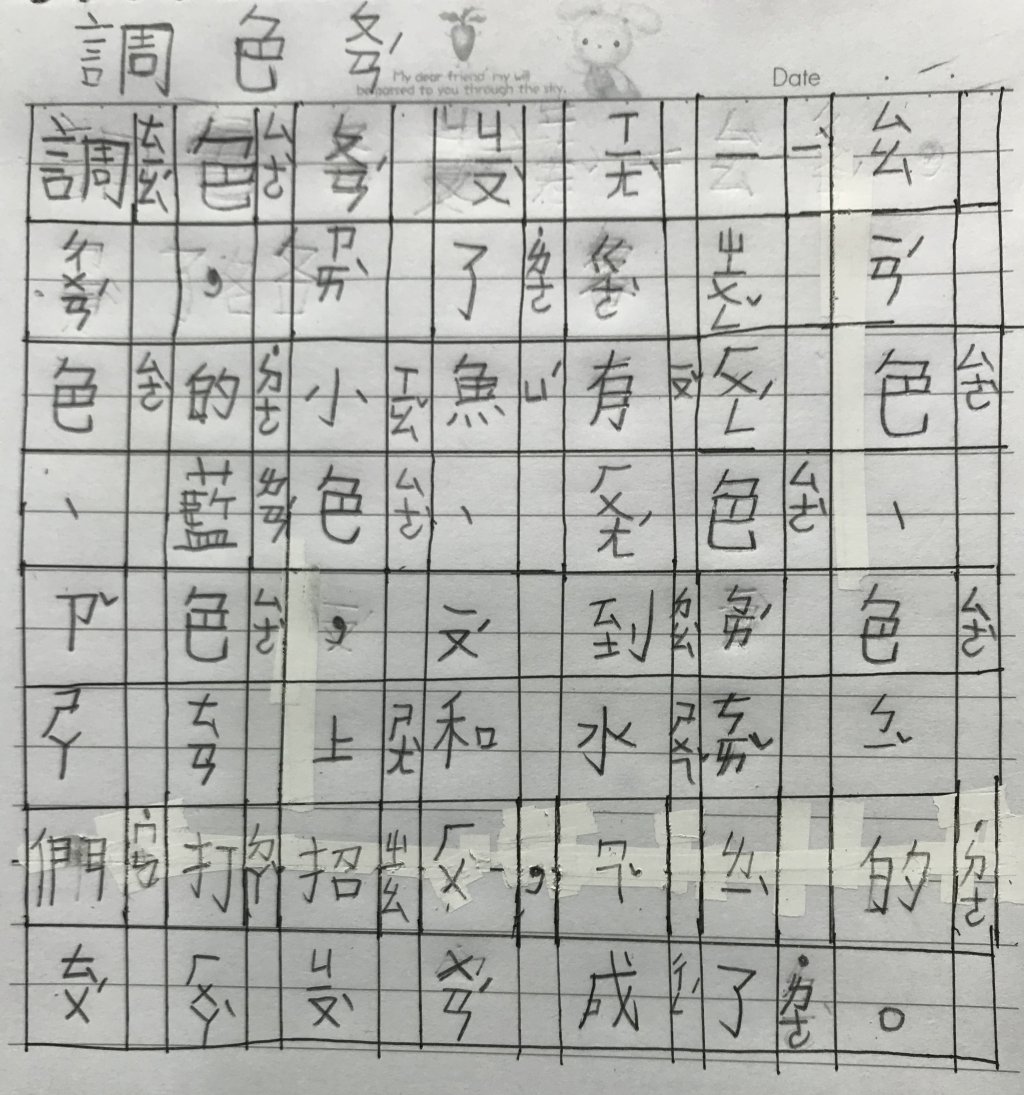 調色ㄆㄢˊ
My dear friend my will
be passed to you through the sky.
Date
調ㄊㄧㄠˊ色ㄙㄜˋㄆㄢˊㄐㄧㄡˋㄒㄧㄤˋ一ㄧˋㄙㄠ
ㄔㄨㄢˊ，ㄗㄞˋ了˙ㄌㄜㄍㄜˋㄓㄨㄥˇㄧㄢˊ
色ㄙㄜˋ的˙ㄉㄜ小ㄒㄧㄠˇ魚ㄩˊ有ㄧㄡˇㄏㄨㄥˊ色ㄙㄜˋ
、藍ㄌㄢˊ色ㄙㄜˋ、ㄏㄨㄤˊ色ㄙㄜˋ、
ㄗˇ色ㄙㄜˋ，ㄧㄡˊ到ㄉㄠˋㄅㄞˊ色ㄙㄜˋ
ㄕㄚㄊㄢ上ㄕㄤˋ和水ㄕㄨㄟˇㄘㄞˇㄋㄧˇ
們˙ㄇㄣ打ㄉㄚˇ招ㄓㄠㄏㄨ，ㄌㄧˋ的˙ㄉㄜ
ㄊㄨˊㄏㄨㄚˋㄐㄧㄡˋㄨㄢˊ成ㄔㄥˊ了˙ㄌㄜ。